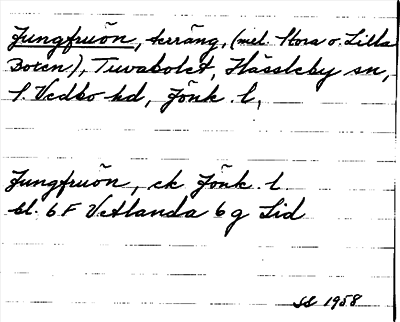 Jungfruön, terräng, (mel. Stora o. Lilla
Boren), Tuvabolet, Hässleby sn,
S. Vedbo hd, Jönk. l.
Jungfruön, ek Jönk. l.
bl. 6 F Vetlanda 6 g Lid
1958